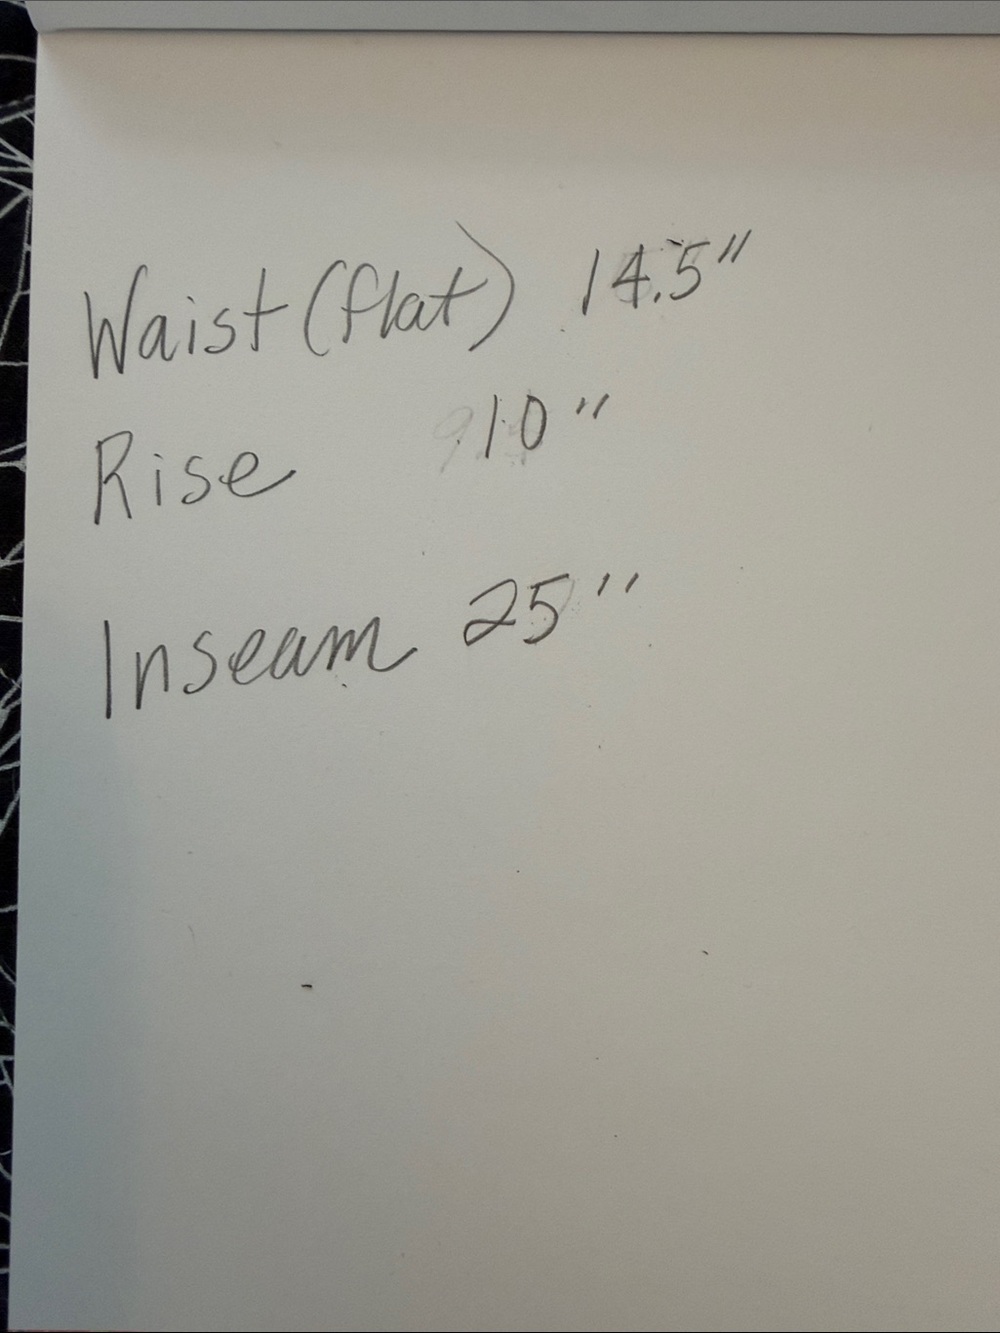 Waist (flat) 14.5"
Rise 10"
Inseam 25"